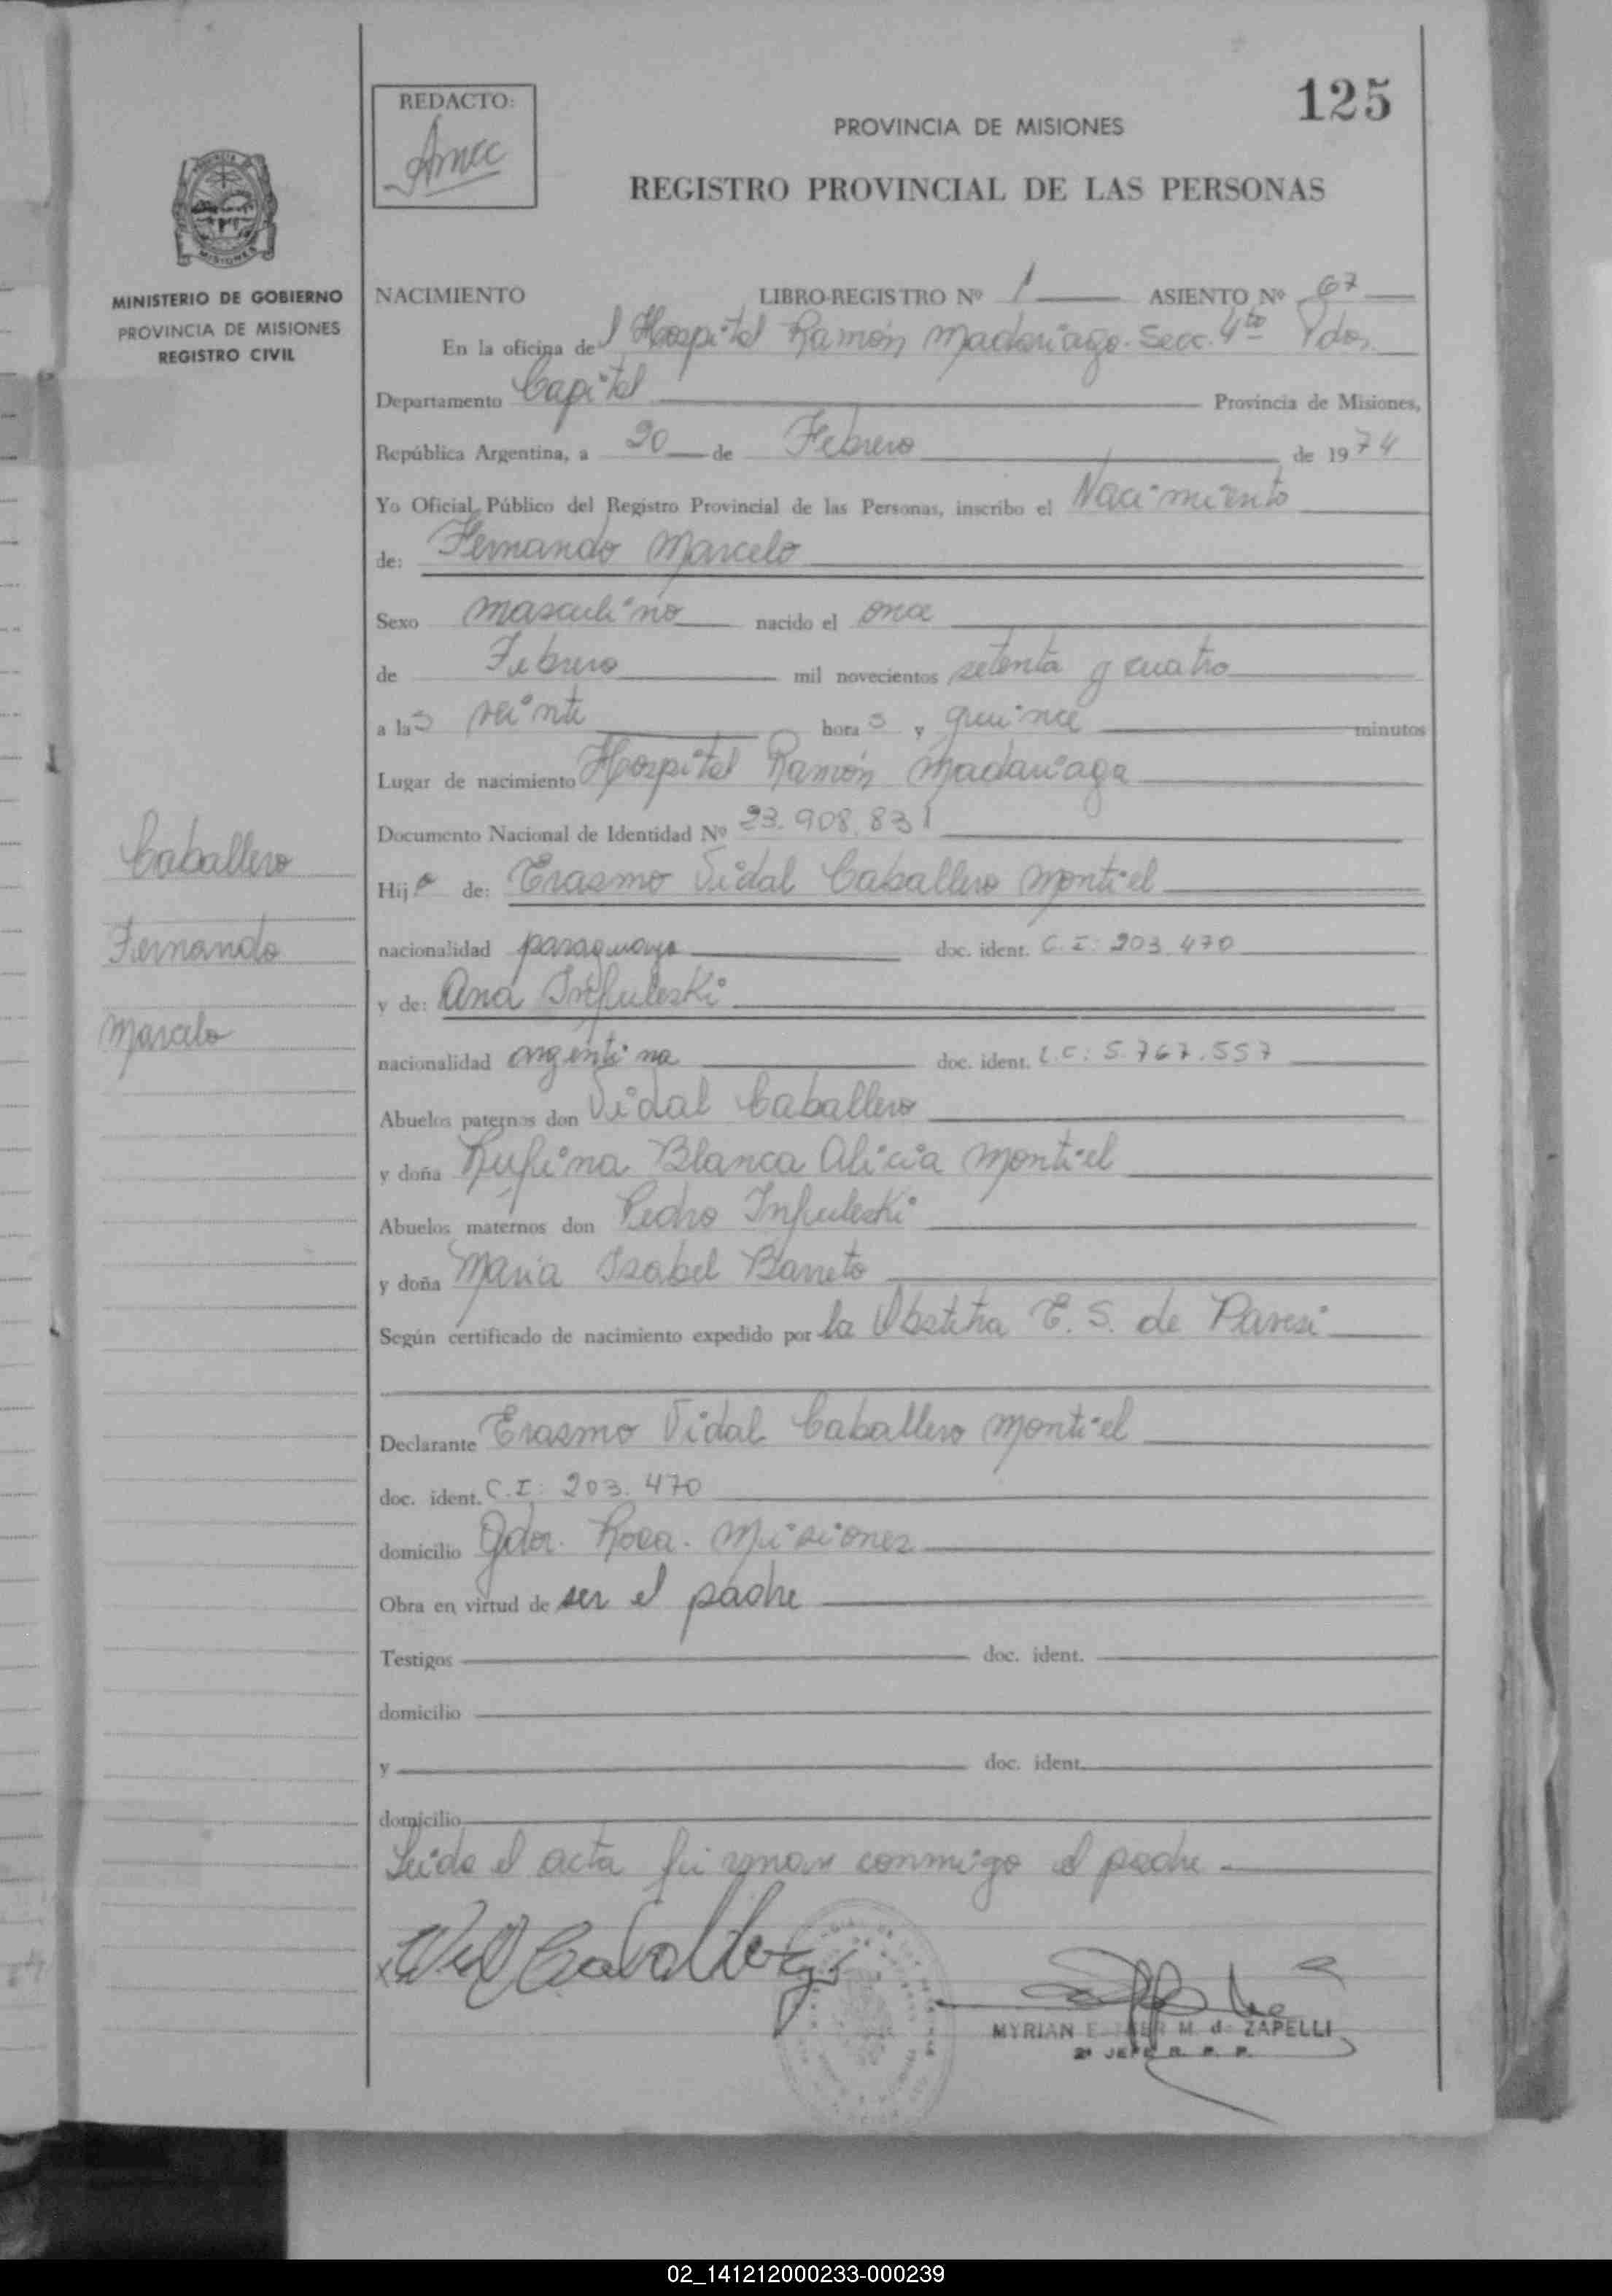 125
REDACTO:
PROVINCIA DE MISIONES
REGISTRO PROVINCIAL DE LAS PERSONAS
MISIONES
MINISTERIO DE GOBIERNO
PROVINCIA DE MISIONES
REGISTRO CIVIL
NACIMIENTO LIBRO-REGISTRO Nº 1 ASIENTO Nº 67
En la oficina del Hospital Ramón Madariaga. Secc. 4ta Pdas.
Departamento Capital Provincia de Misiones,
República Argentina, a 20 de Febrero de 1974
Yo Oficial Público del Registro Provincial de las Personas, inscribo el Nacimiento
de: Fernando Marcelo
Sexo masculino nacido el once
de Febrero mil novecientos setenta y cuatro
a las veinte horas y quince minutos
Lugar de nacimiento Hospital Ramón Madariaga
Documento Nacional de Identidad Nº 23.908.831
Caballero
Hijo de: Erasmo Vidal Caballero Montiel
Fernando
nacionalidad paraguaya doc. ident. C.I: 203.470
y de: Ana Infuleski
Marcelo
nacionalidad argentina doc. ident. L.C: 5.767.557
Abuelos paternos don Vidal Caballero
y doña Rufina Blanca Alicia Montiel
Abuelos maternos don Pedro Infuleski
y doña Maria Isabel Barreto
Según certificado de nacimiento expedido por la Obstetra E. S. de Paresi
Declarante Erasmo Vidal Caballero Montiel
doc. ident. C.I: 203.470
domicilio Gdor. Roca. Misiones
Obra en virtud de ser el padre
Testigos doc. ident.
domicilio
y doc. ident.
domicilio
Leida el acta firman conmigo el padre
MYRIAN E. M. de ZAPELLI
2º JEFE R. P. P.
02_141212000233-000239